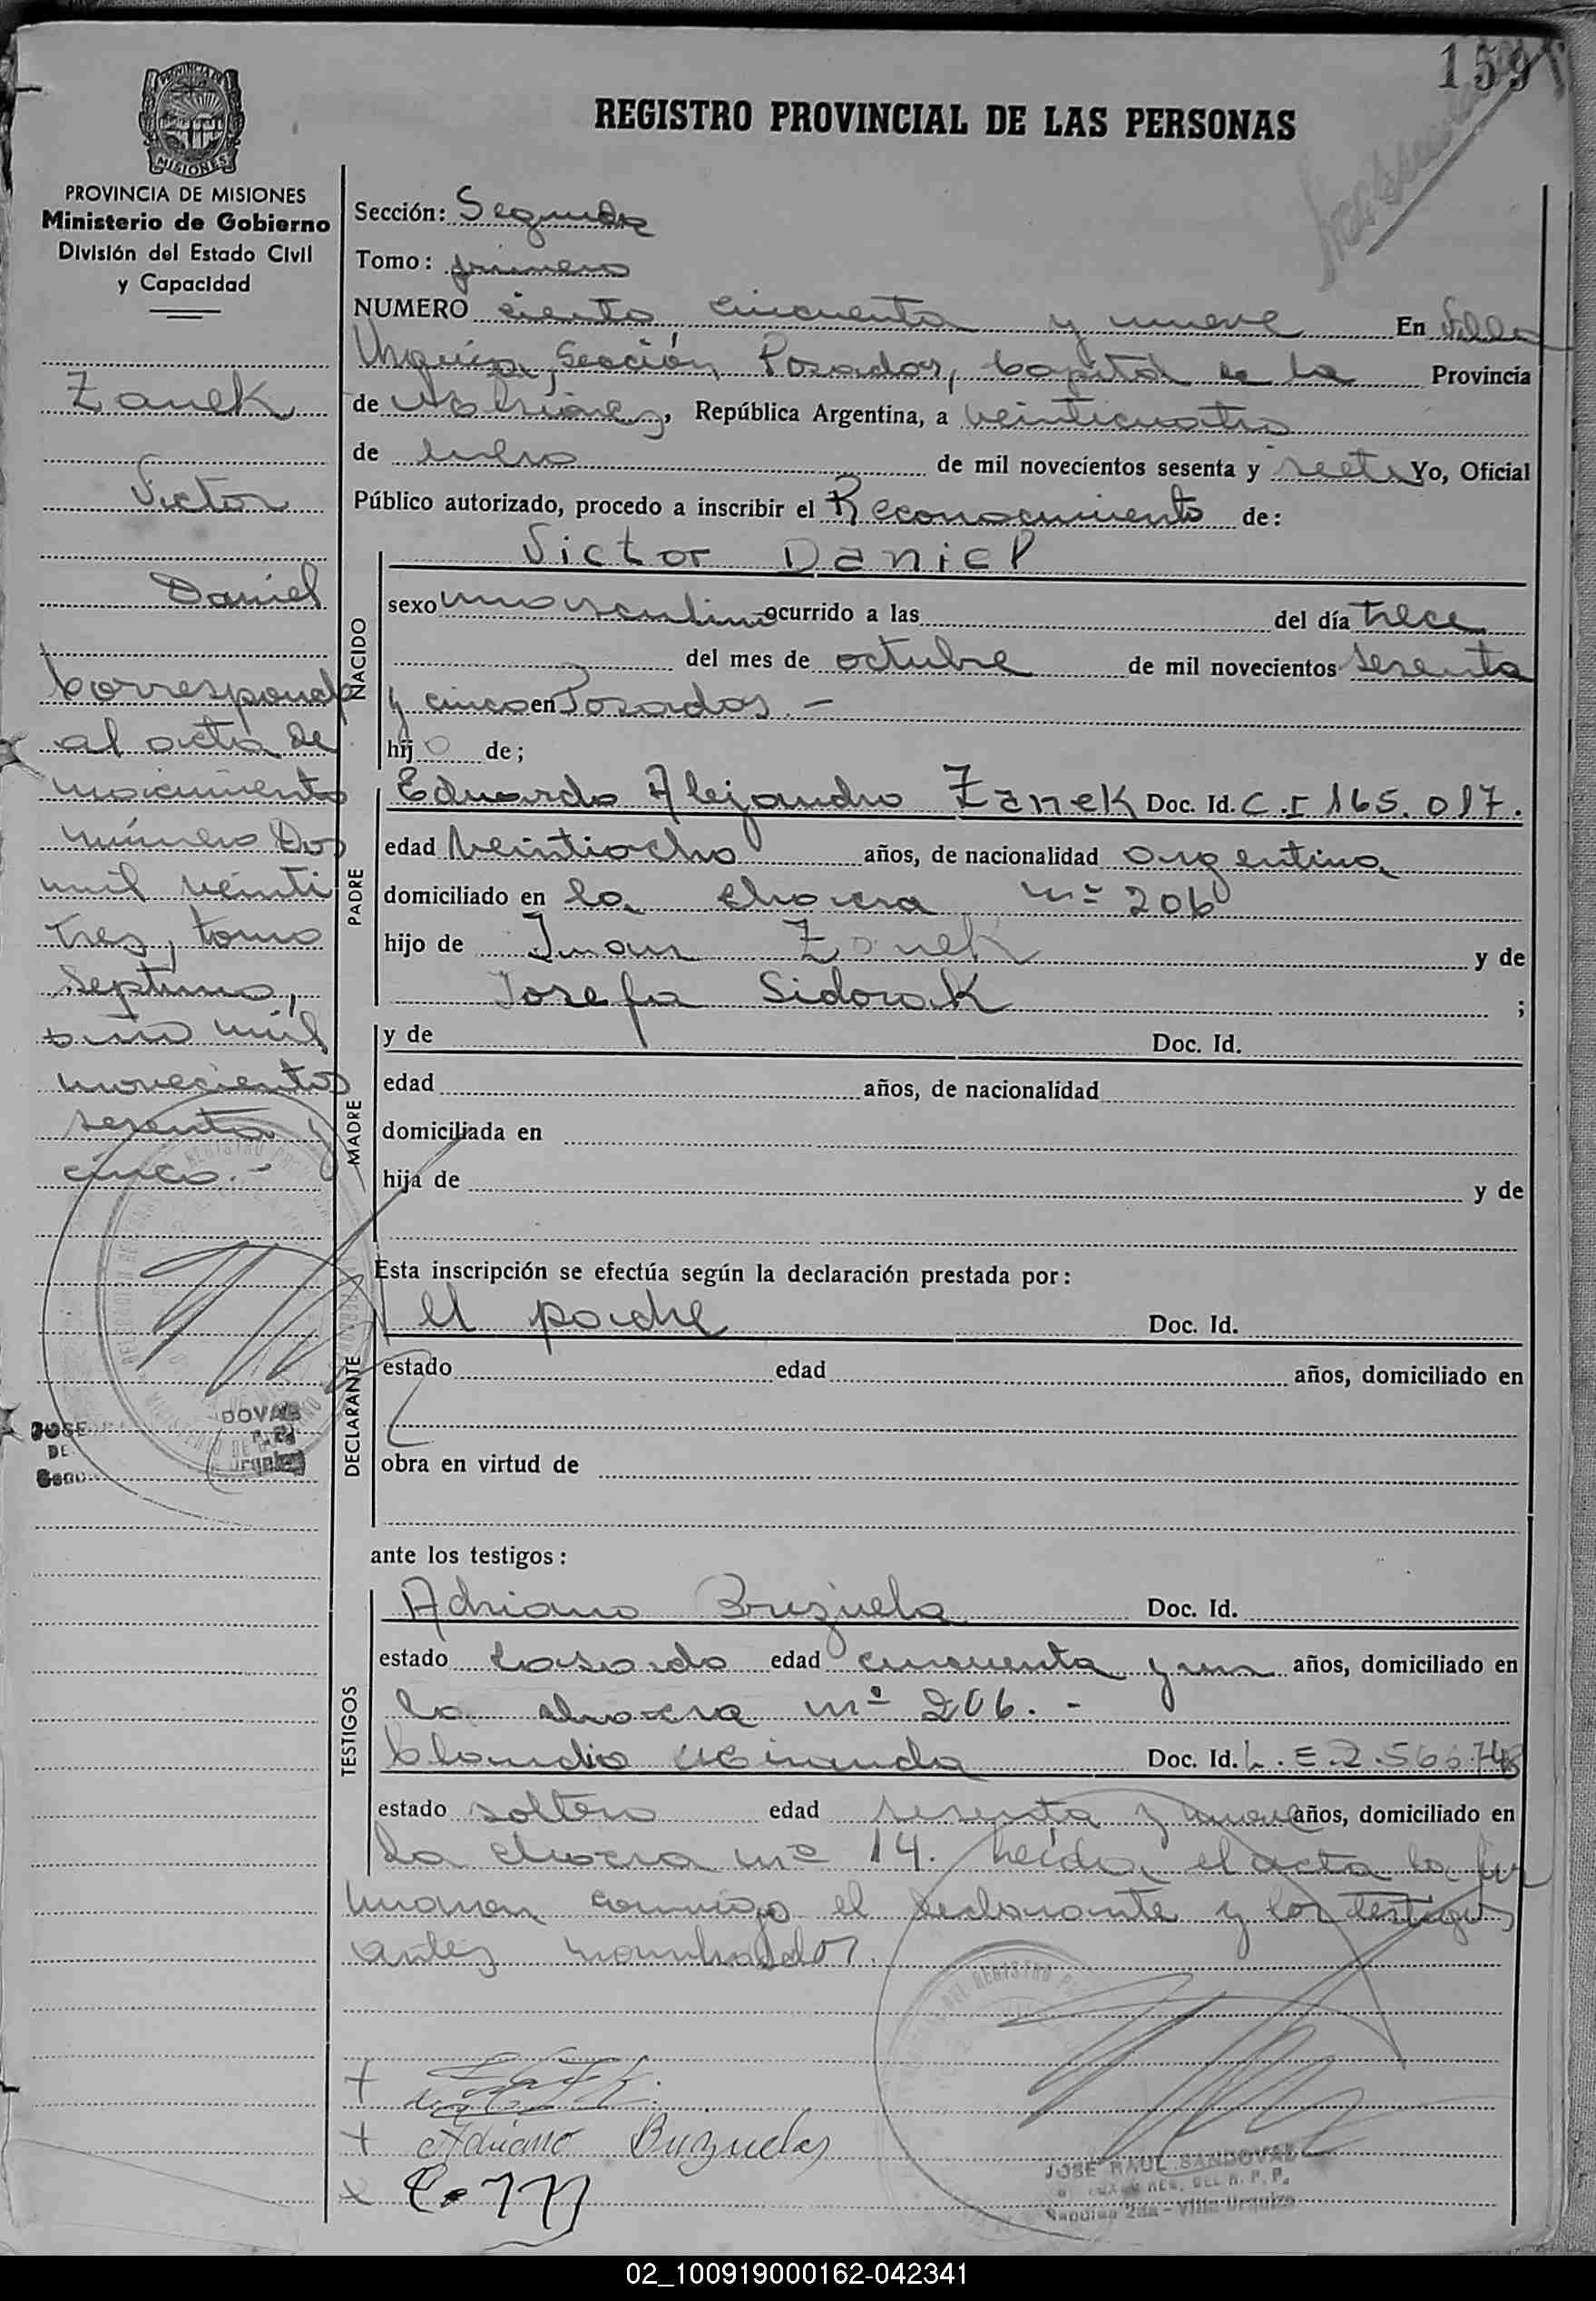 159
REGISTRO PROVINCIAL DE LAS PERSONAS
PROVINCIA DE
MISIONES
PROVINCIA DE MISIONES
Ministerio de Gobierno
División del Estado Civil
y Capacidad
Zanek
Victor
Daniel
Corresponde
al acta de
nacimiento
número Dos
mil veinti
tres, tomo
septimo,
año mil
novecientos
sesenta y
cinco.-
Sección: Segunda
Tomo: primero
NUMERO ciento cincuenta y nueve En Villa
Urquiza, Sección Posadas, Capital de la Provincia
de Misiones, República Argentina, a veinticuatro
de de mil novecientos sesenta y siete Yo, Oficial
Público autorizado, procedo a inscribir el Reconocimiento de:
Victor Daniel
NACIDO
sexo masculino ocurrido a las del día trece
del mes de octubre de mil novecientos sesenta
y cinco en Posadas.-
hijo de;
PADRE
Eduardo Alejandro Zanek Doc. Id. C.I 165.017.
edad veintiocho años, de nacionalidad argentina
domiciliado en la chacra nº 206
hijo de Juan Zanek y de
Josefa Sidorak ;
MADRE
y de Doc. Id.
edad años, de nacionalidad
domiciliada en
hija de y de
Esta inscripción se efectúa según la declaración prestada por:
DECLARANTE
el padre Doc. Id.
estado edad años, domiciliado en
obra en virtud de
ante los testigos:
TESTIGOS
Adriano Bruzuela Doc. Id.
estado casado edad cincuenta y un años, domiciliado en
la chacra nº 206.-
Claudio Miranda Doc. Id. L.E.2.566.748
estado soltero edad sesenta y nueve años, domiciliado en
la chacra nº 14. Leída el acta la fir
maron conmigo el declarante y los testigos
antes nombrados.
+
+ Adriano Buzuelas
x C. M
JOSE RAUL SANDOVAL
DEL R. P. P.
Sección 2da - Villa Urquiza
02_100919000162-042341